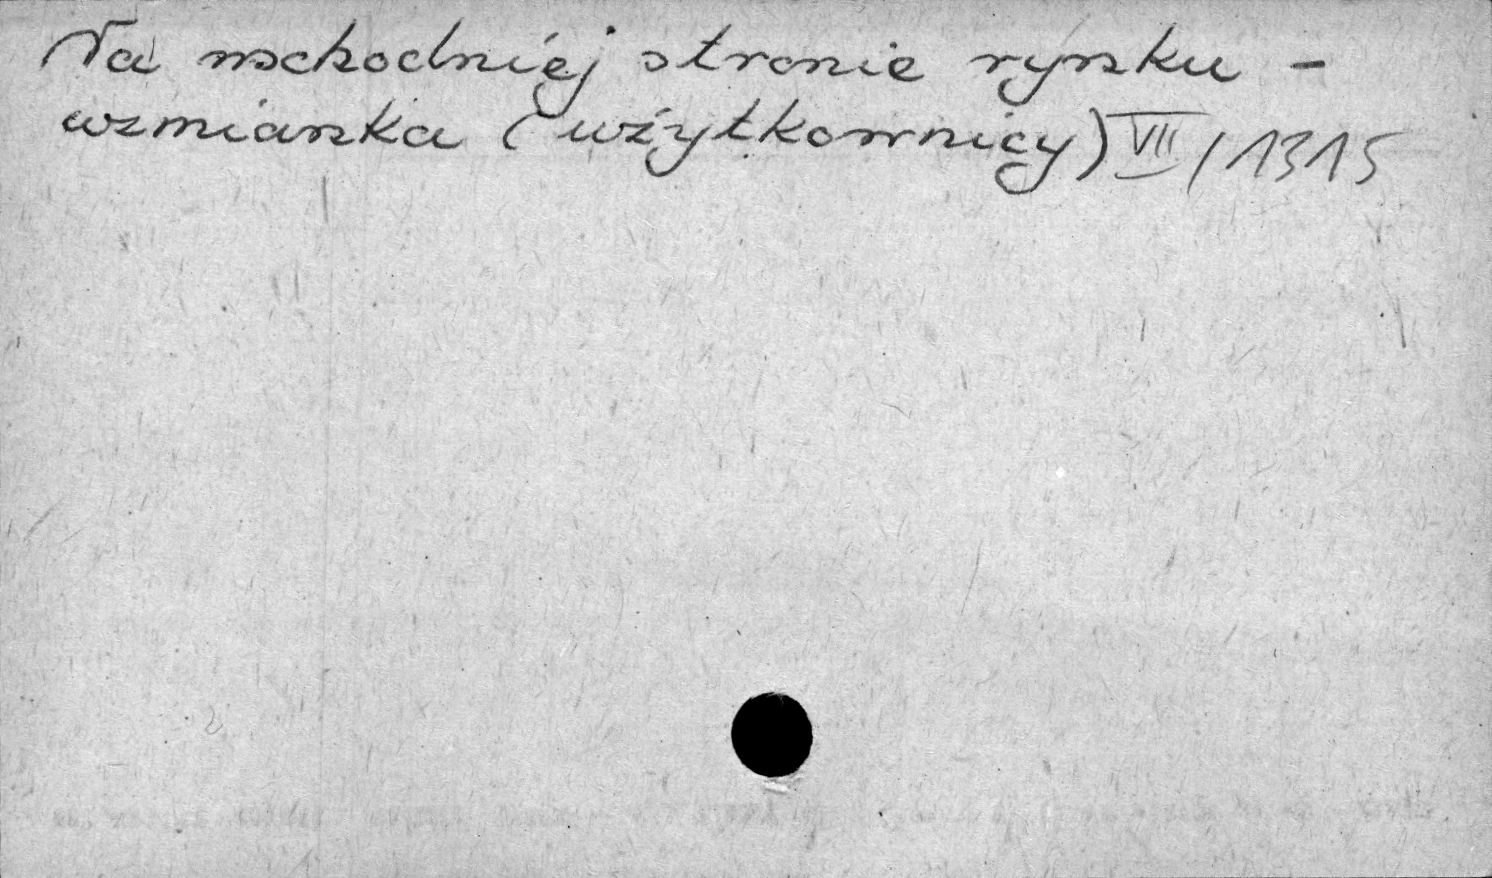 Na wschodniej stronie rynku -
wzmianka (użytkownicy) VIII/1315